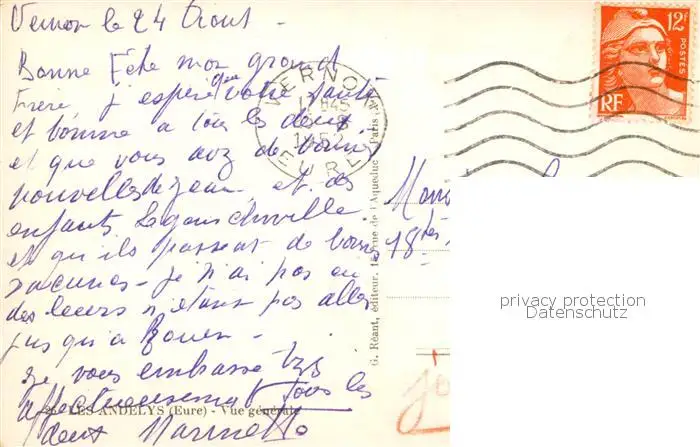 Vernon le 24 Aout -
Bonne Fête mon grand
Frère j'espère que votre santé
et bonne a tous les deux
et que vous avez de bonnes
nouvelles de Jean et des
enfants
et qu'ils passent de bonnes
vacances - je n'ai pas eu
des leurs n'étant pas allée
jusqu'a Rouen -
Je vous embrasse tres
affectueusement tous les
deux
LES ANDELYS (Eure) - Vue générale
G. Réant, éditeur, rue de l'Aqueduc - Paris
VERNON
H45
EURE
12F
POSTES
RF
18
privacy protection
Datenschutz